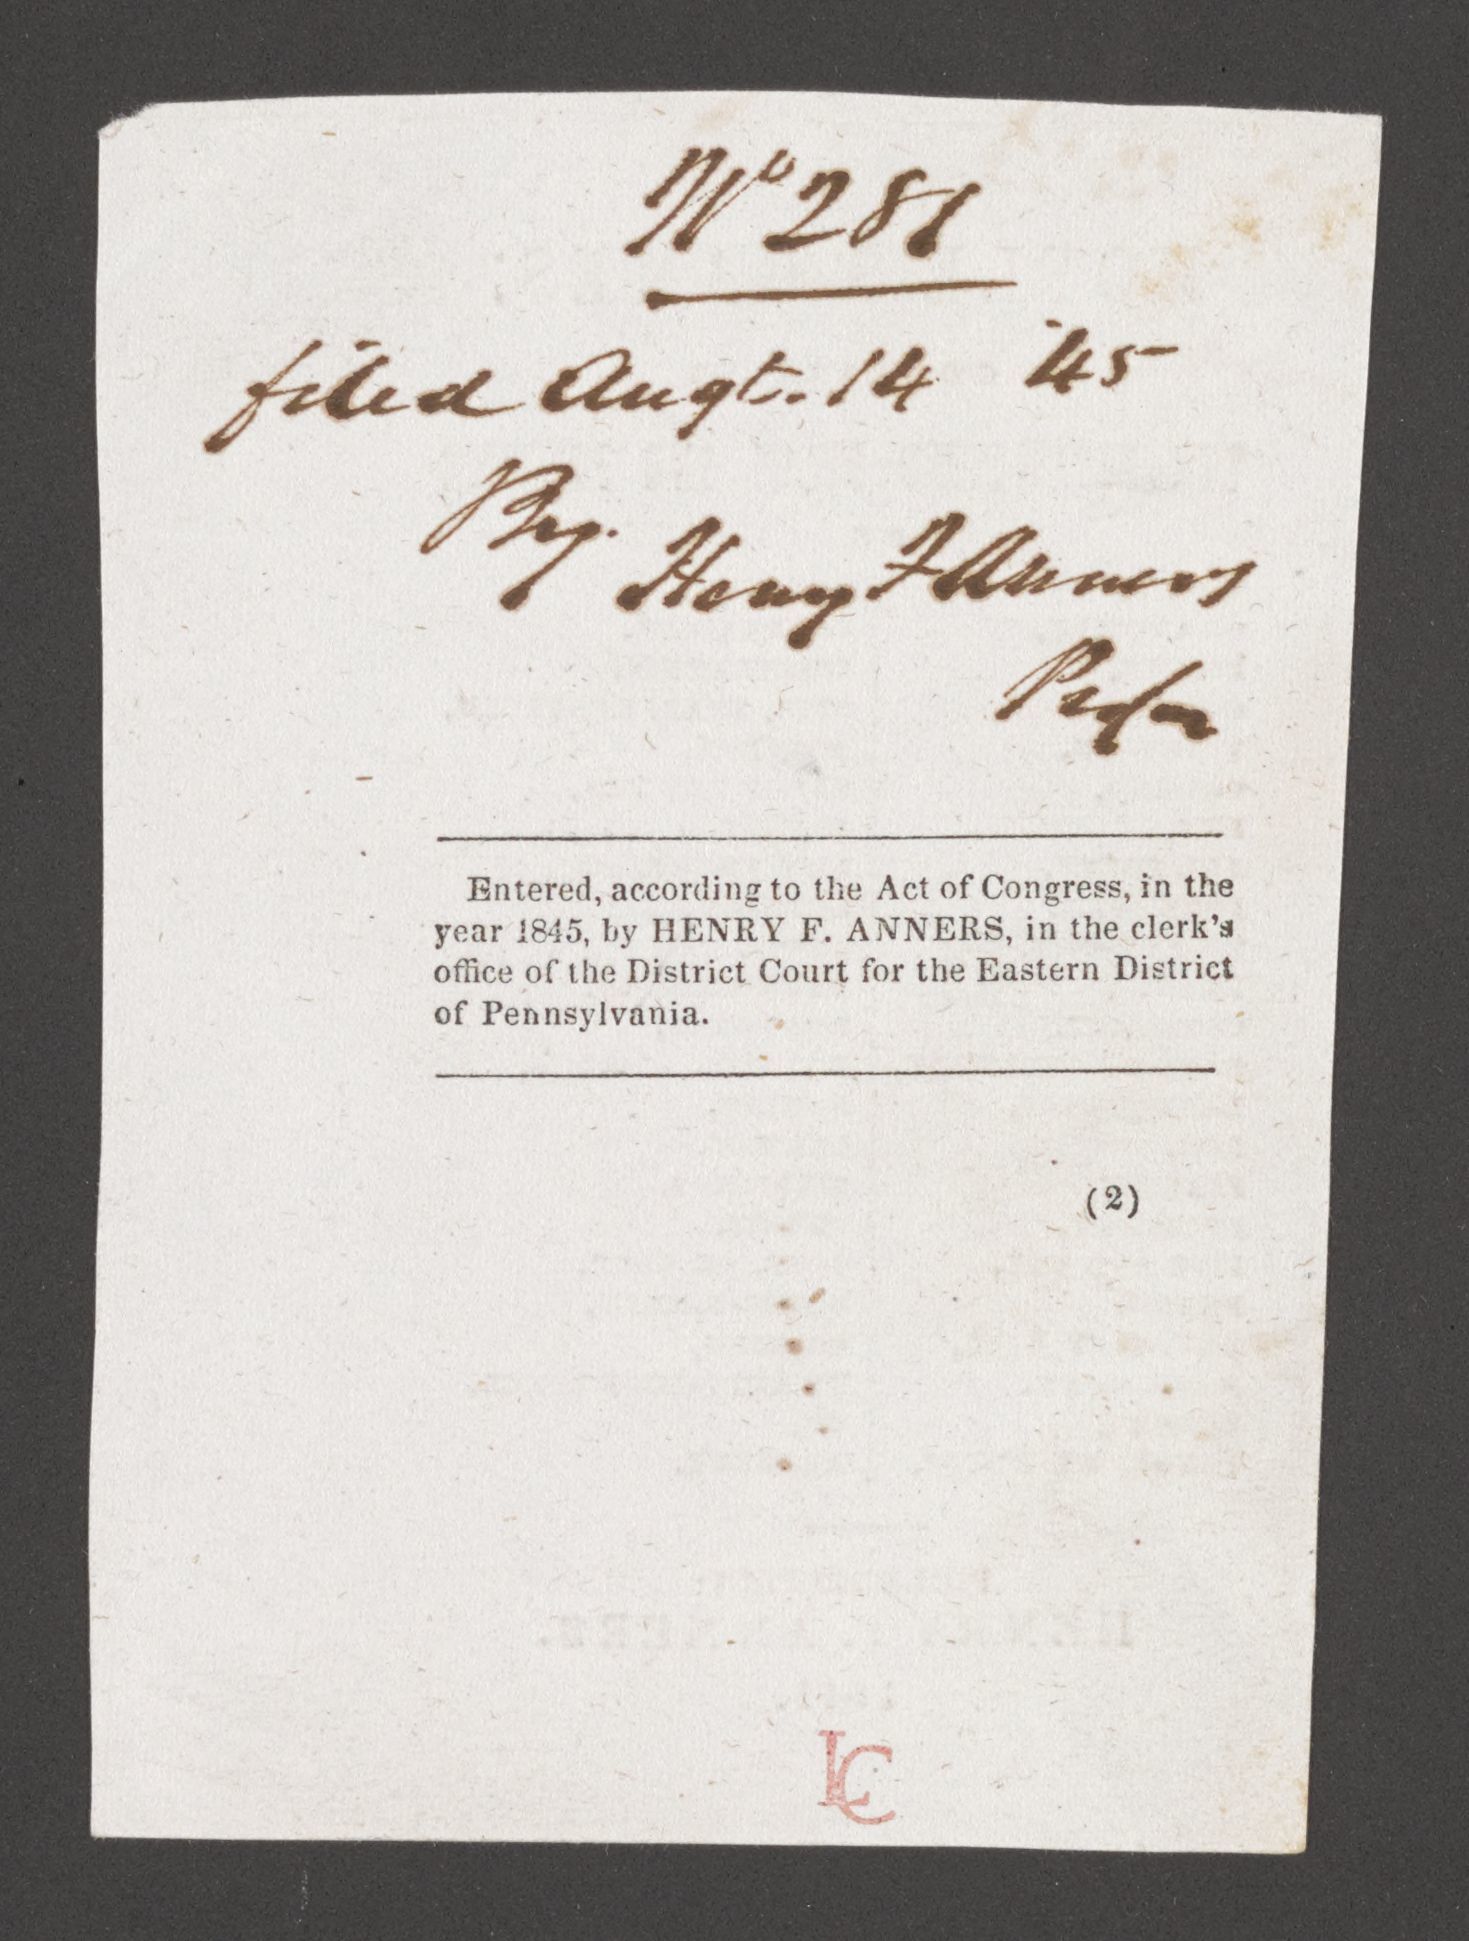 No 281
filed Augt. 14 '45
By. Henry F Anners
Entered, according to the Act of Congress, in the
year 1845, by HENRY F. ANNERS, in the clerk's
office of the District Court for the Eastern District
of Pennsylvania.
(2)
LC